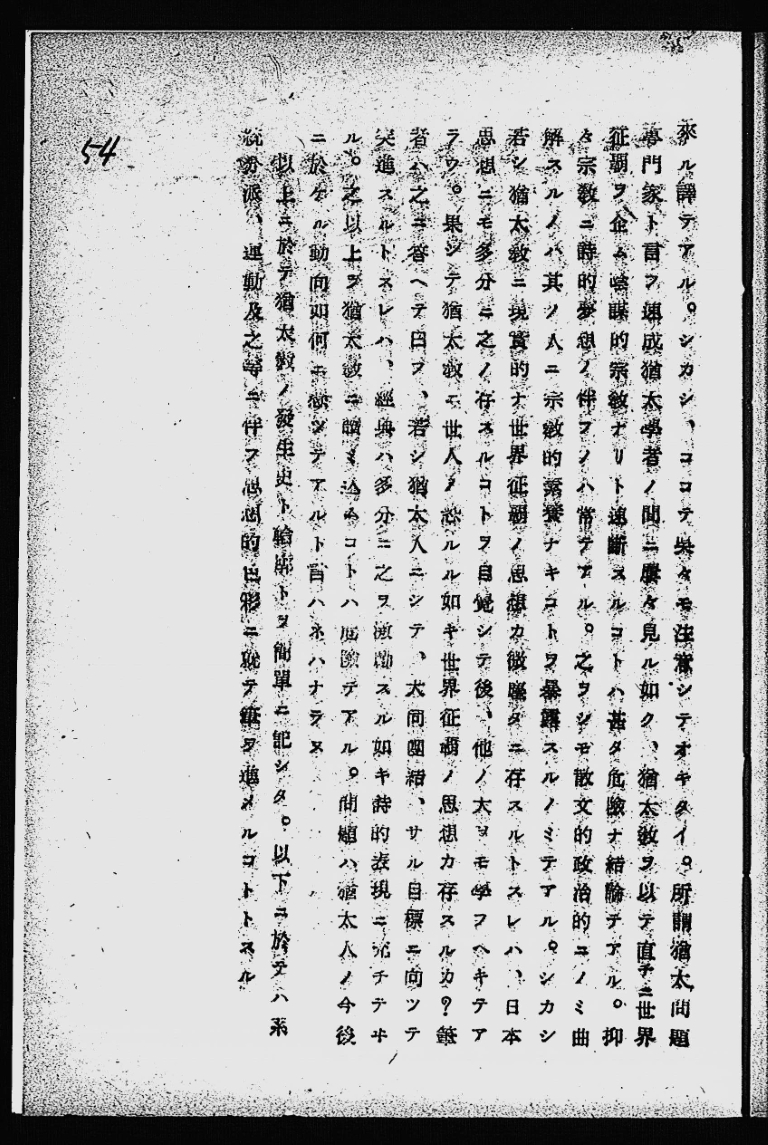 來ル譯テアル。シカシ、ココテ呉々モ注意シテオキタイ。所謂猶太問題
專門家ト言フ速成猶太學者ノ間ニ屢々見ル如ク、猶太敎ヲ以テ直チニ世界
征覇ヲ企ム陰謀的宗敎ナリト速斷スルコトハ甚タ危險ナ結論テアル。抑
々宗敎ニ詩的夢想ノ伴フノハ常テアル。之ヲシモ散文的政治的ニノミ曲
解スルノハ其ノ人ニ宗敎的素養ナキコトヲ暴露スルノミテアル。シカシ
若シ猶太敎ニ現實的ナ世界征覇ノ思想カ微塵タニ存スルトスレハ、日本
思想ニモ多分ニ之ノ存スルコトヲ自覺シテ後、他ノ大ヲモ學フヘキテア
ラウ。果シテ猶太敎ニ世人ノ恐ルル如キ世界征覇ノ思想カ存スルカ?筆
者ハ之ニ答ヘテ曰フ、若シ猶太人ニシテ、大同團結、サル目標ニ向ツテ
突進スルトスレハ、經典ハ多分ニ之ヲ激勵スル如キ詩的表現ニ充チテヰ
ル。之以上ヲ猶太敎ニ讀ミ込ムコトハ危險テアル。問題ハ猶太人ノ今後
ニ於ケル動向如何ニ懸ツテアルト言ハネハナラヌ
以上ニ於テ猶太敎ノ發生史ト輪廓トヲ簡單ニ記シタ。以下ニ於テハ系
統分派、運動及之等ニ伴フ思想的色彩ニ就テ筆ヲ進メルコトトスル
54